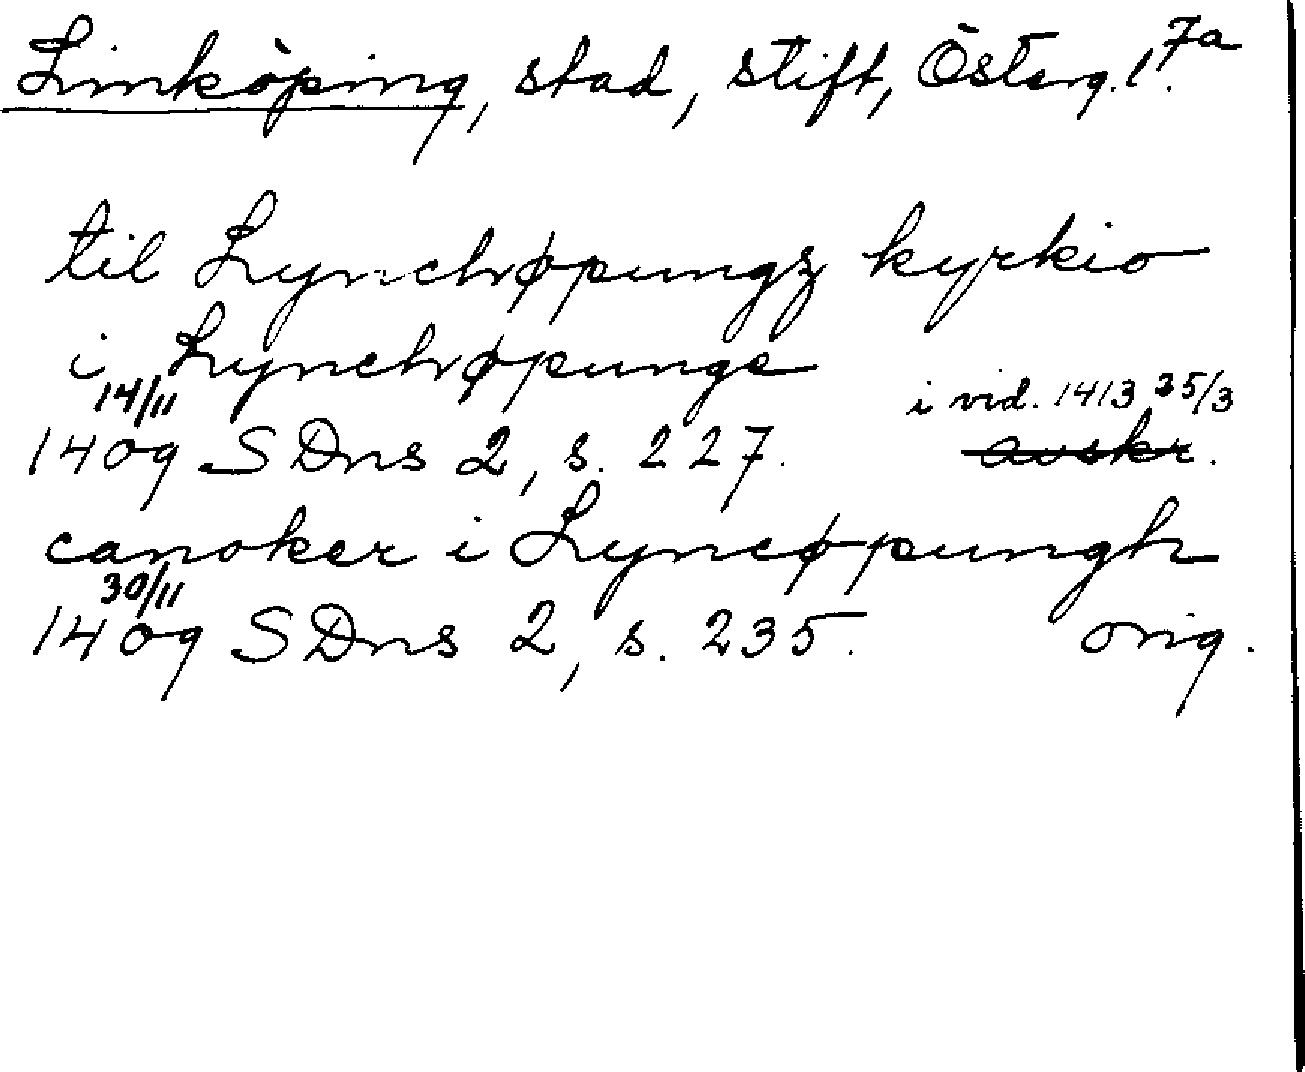 Linköping, stad, stift, Österg. l. 7a
til Lynchøpungz kyrkio
i Lynchøpunge
14/11 i vid. 1413 25/3
1409 SDns 2, s. 227. avskr.
canoker i Lyncøpungh
30/11
1409 SDns 2, s. 235. orig.